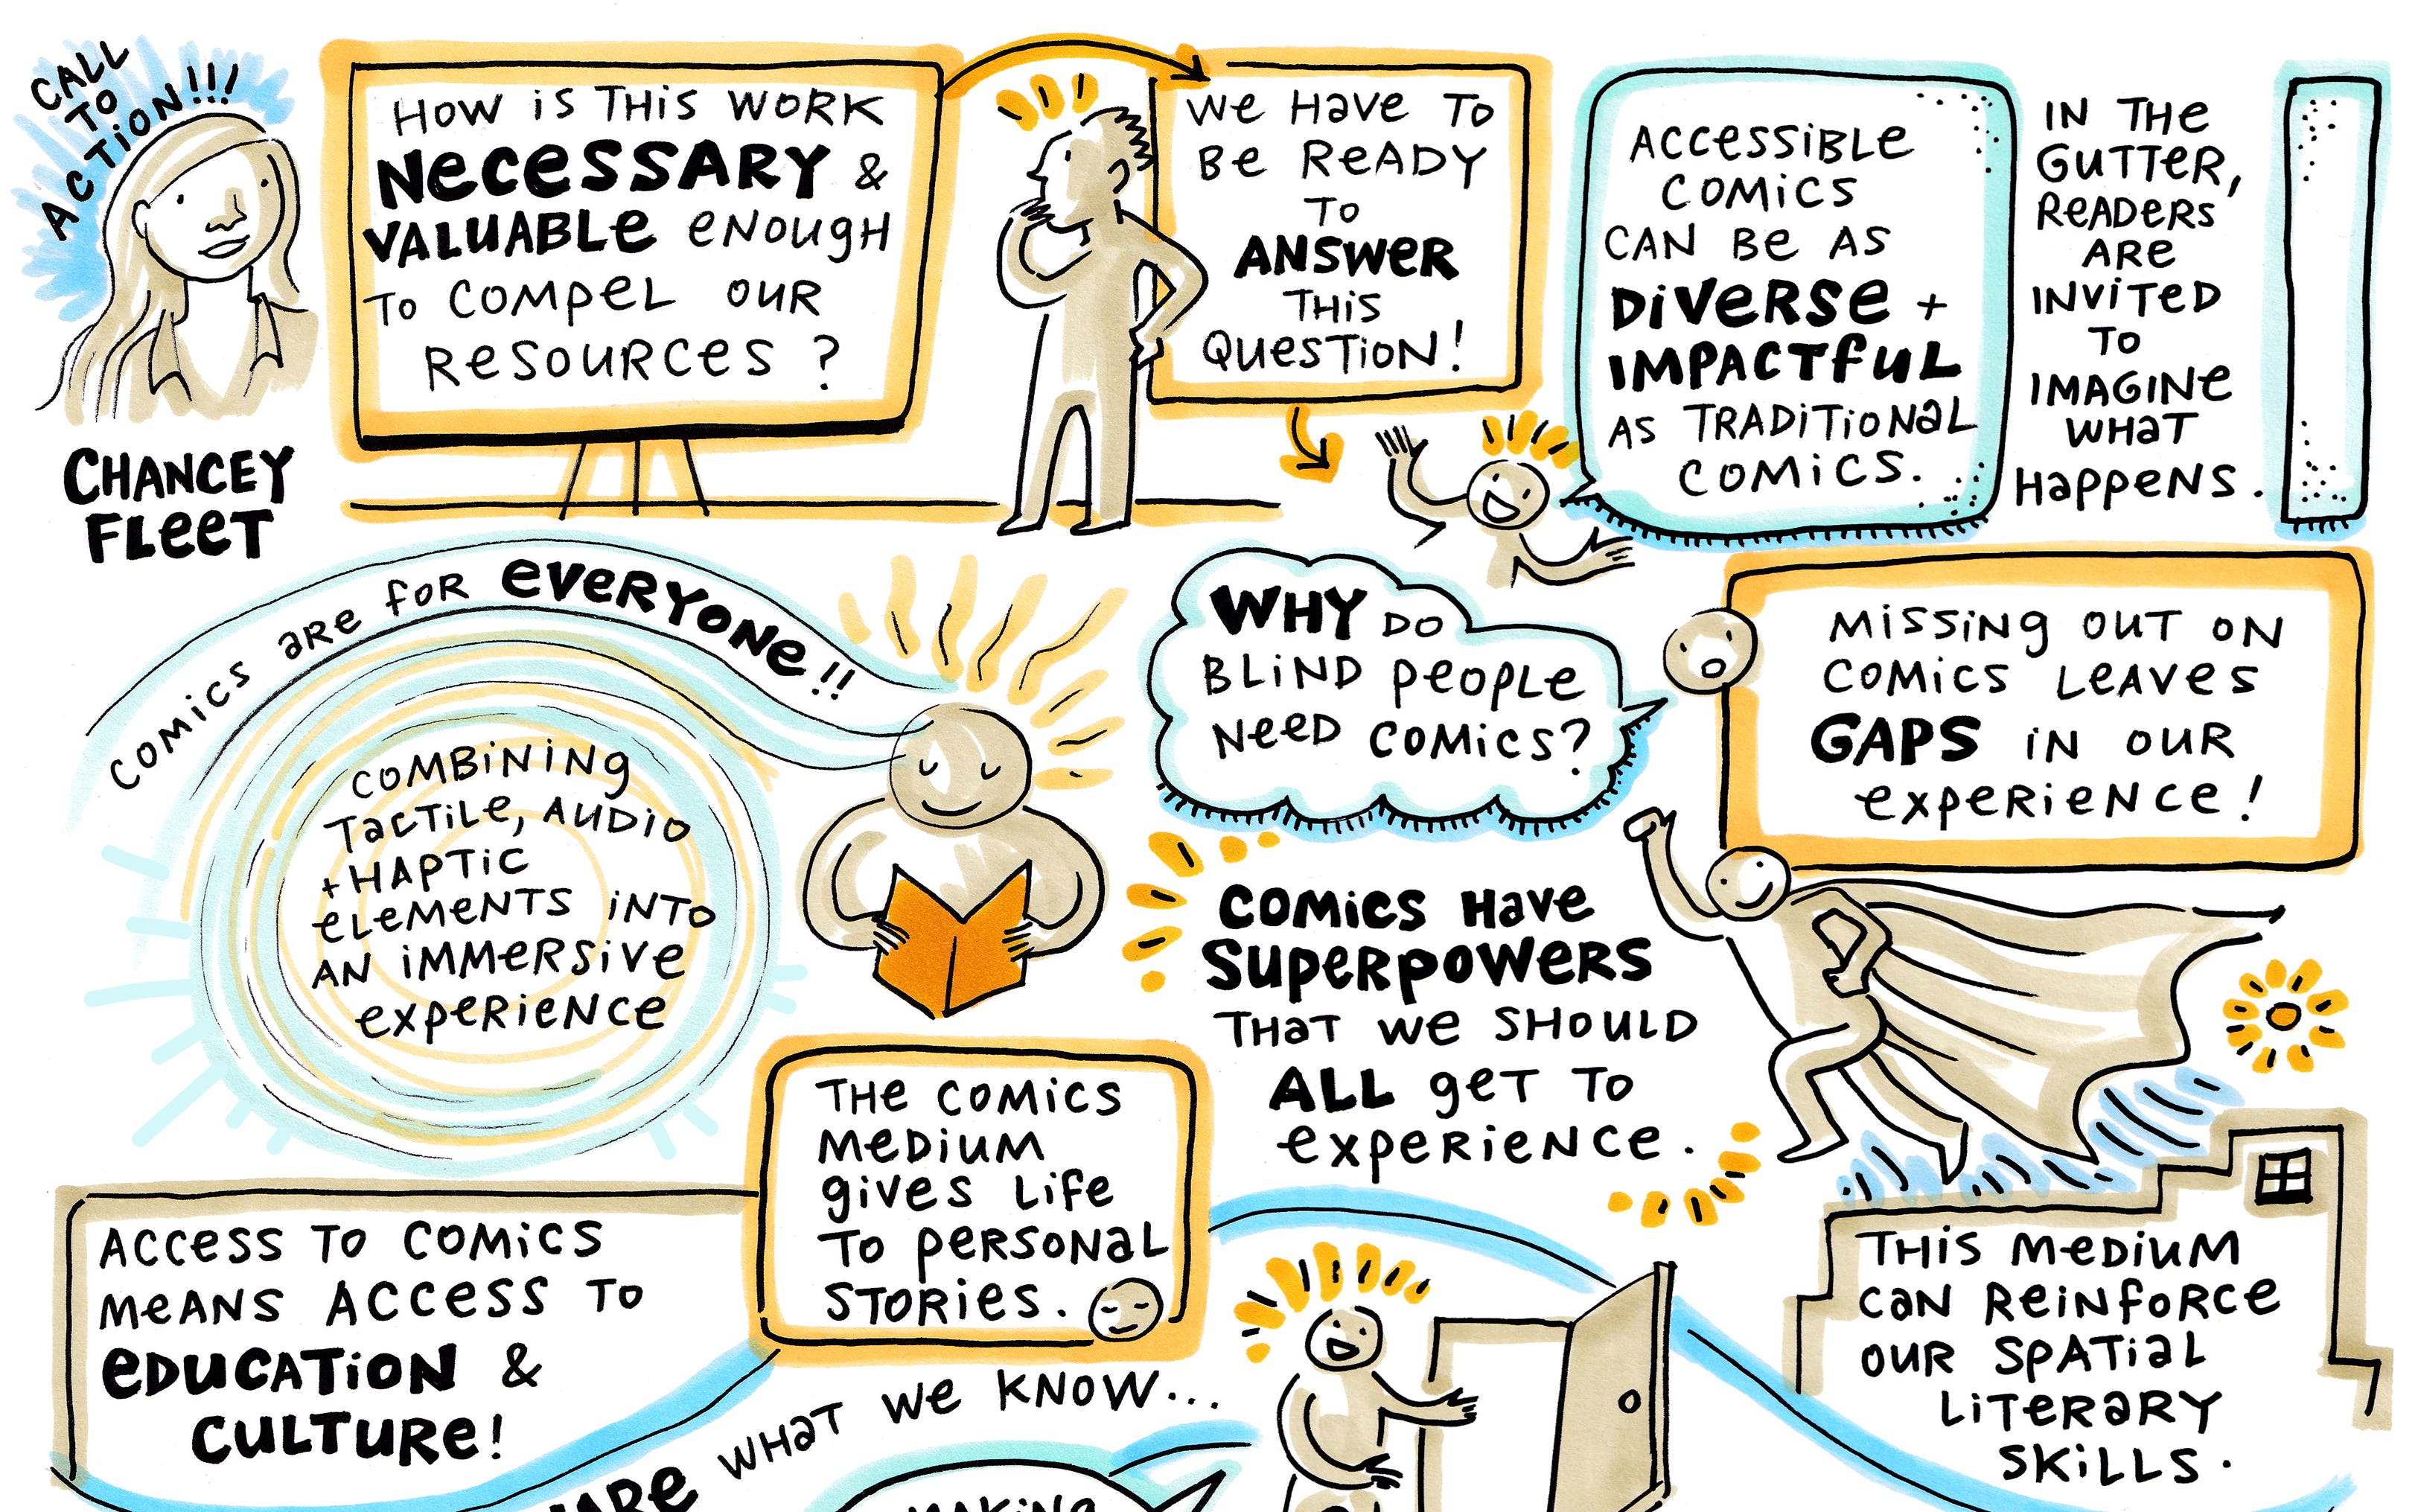 CALL
TO
ACTION!!!
CHANCEY
FLEET
HOW IS THIS WORK
NECESSARY &
VALUABLE ENOUGH
TO COMPEL OUR
RESOURCES ?
WE HAVE TO
BE READY
TO
ANSWER
THIS
QUESTION!
ACCESSIBLE
COMICS
CAN BE AS
DIVERSE +
IMPACTFUL
AS TRADITIONAL
COMICS.
IN THE
GUTTER,
READERS
ARE
INVITED
TO
IMAGINE
WHAT
HAPPENS.
COMICS ARE FOR EVERYONE!!
COMBINING
TACTILE, AUDIO
+ HAPTIC
ELEMENTS INTO
AN IMMERSIVE
EXPERIENCE
WHY DO
BLIND PEOPLE
NEED COMICS?
MISSING OUT ON
COMICS LEAVES
GAPS IN OUR
EXPERIENCE!
COMICS HAVE
SUPERPOWERS
THAT WE SHOULD
ALL GET TO
EXPERIENCE.
THE COMICS
MEDIUM
GIVES LIFE
TO PERSONAL
STORIES.
ACCESS TO COMICS
MEANS ACCESS TO
EDUCATION &
CULTURE!
THIS MEDIUM
CAN REINFORCE
OUR SPATIAL
LITERARY
SKILLS.
WHAT WE KNOW...